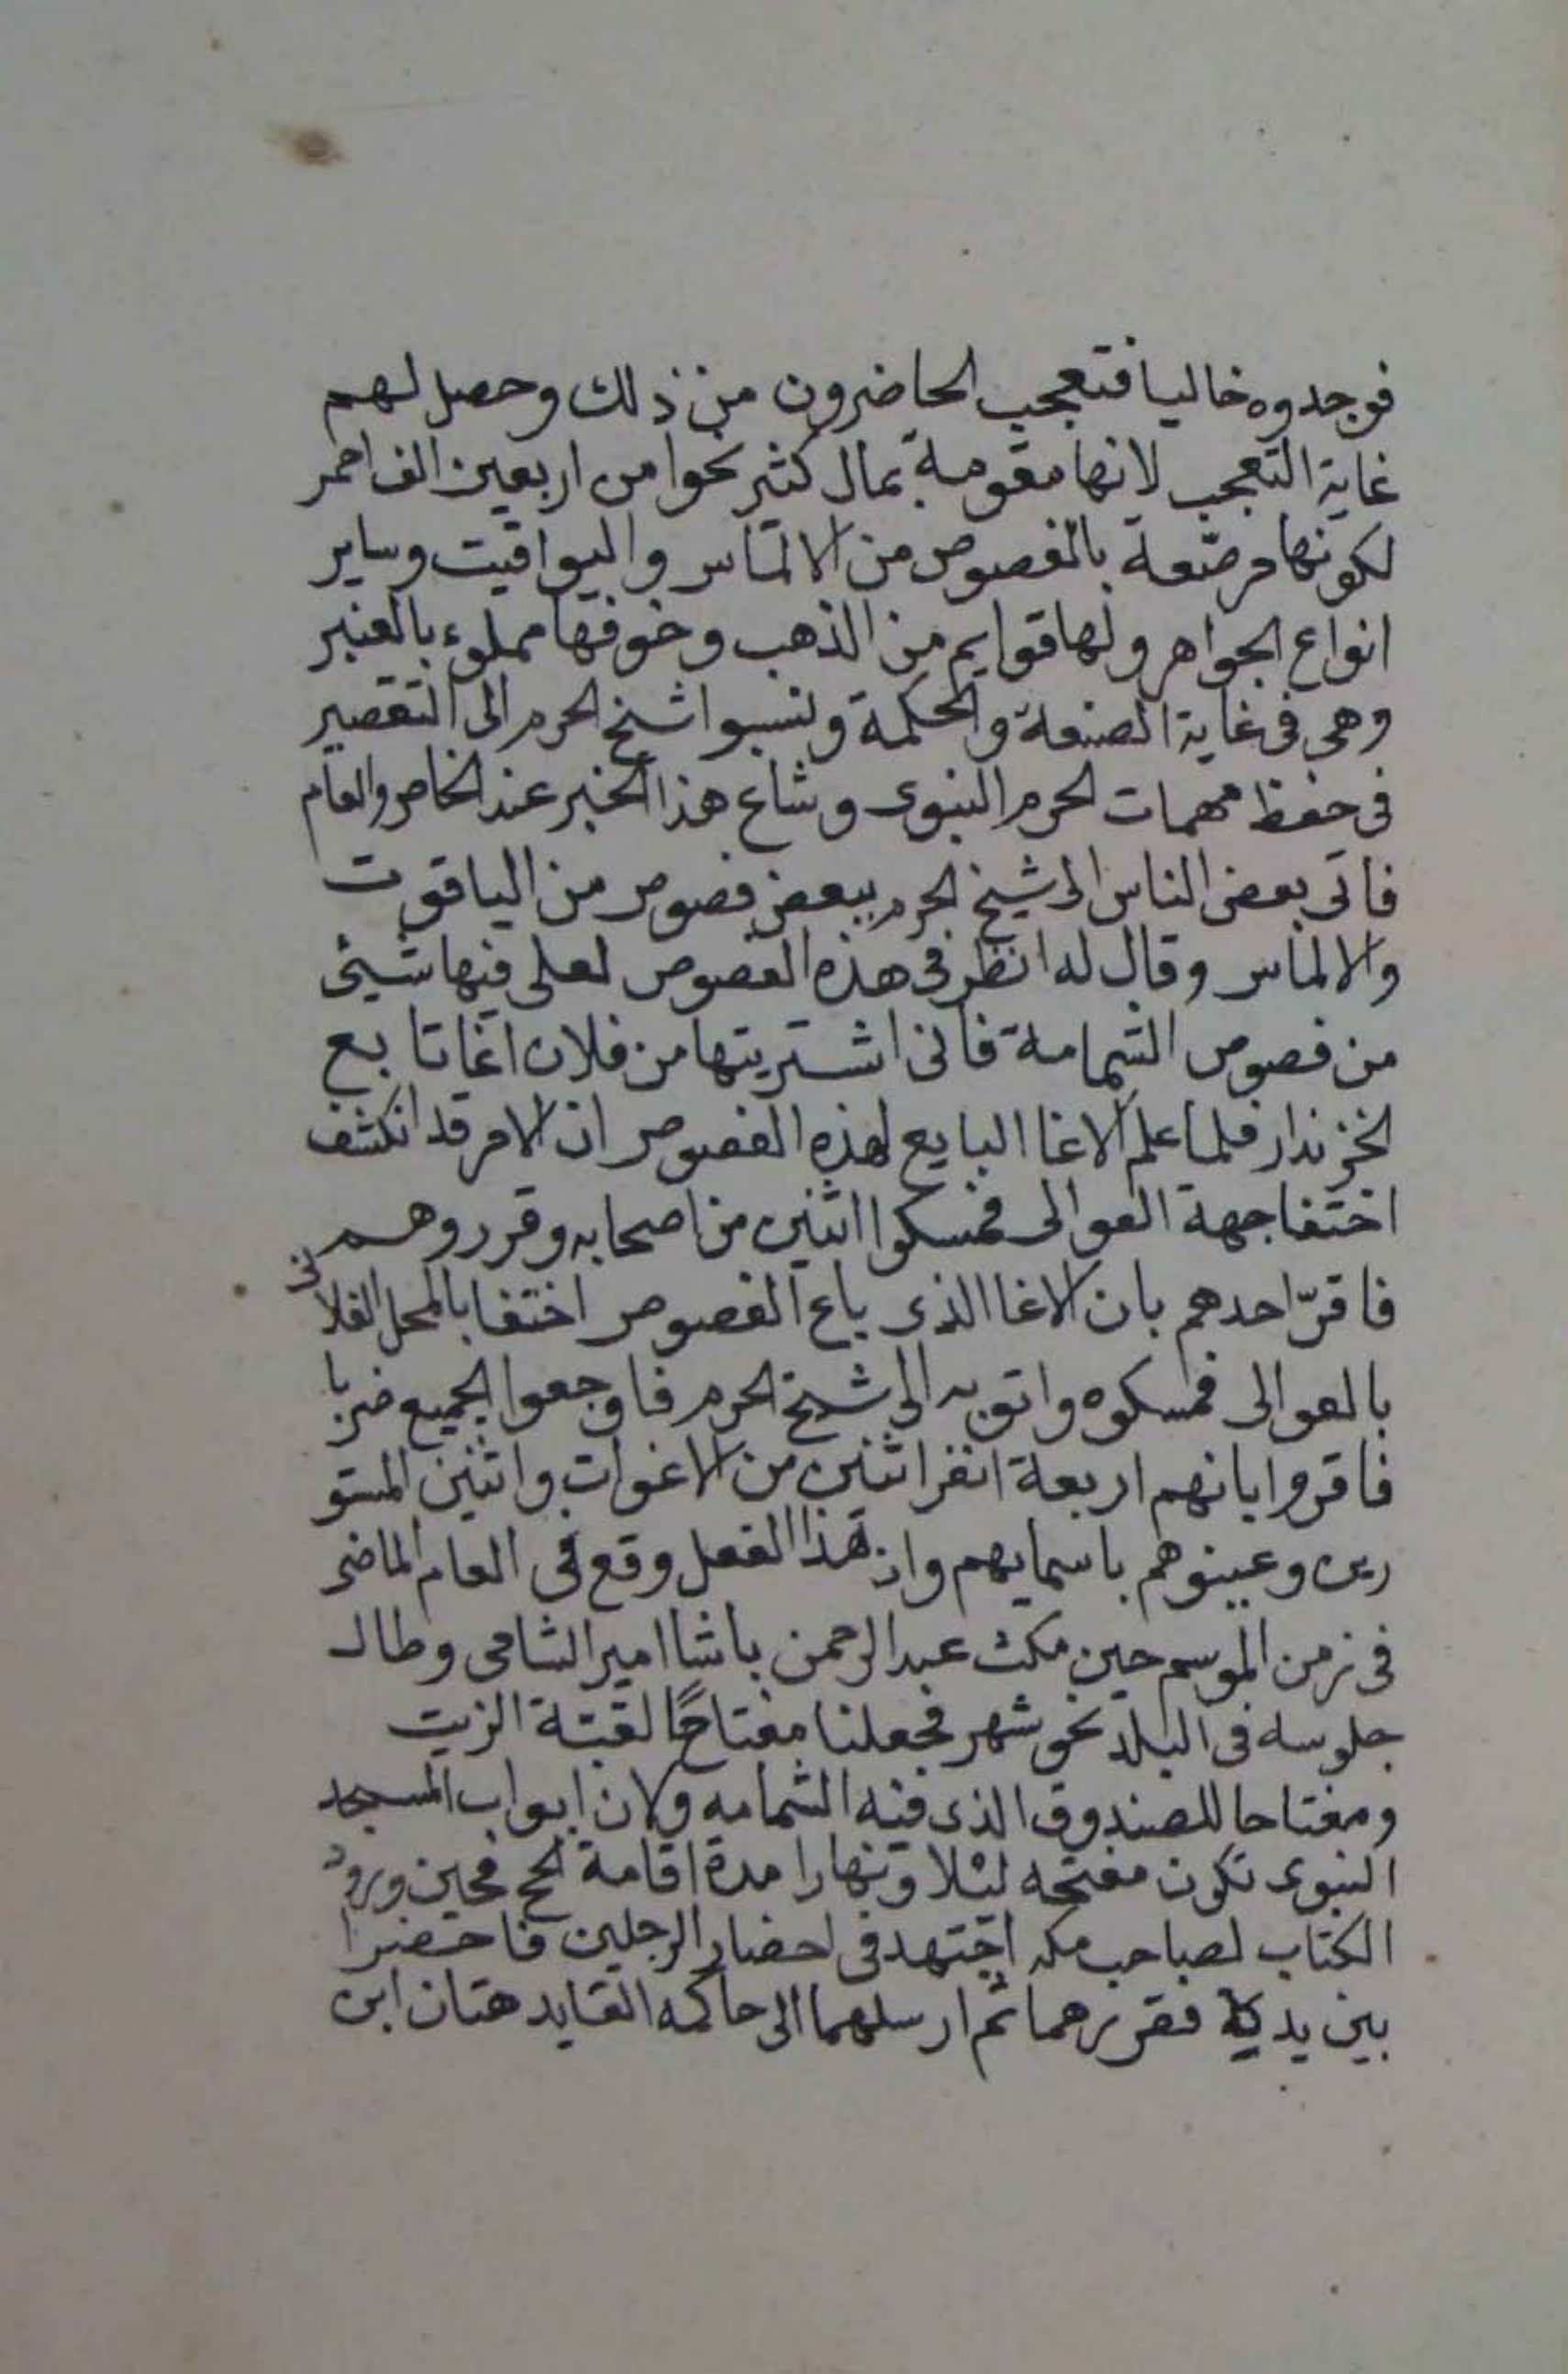 فوجدوه خاليا فتعجب الحاضرون من ذلك وحصل لهم
غاية التعجب لانها مقومة بمال كثير نحوا من اربعين الف احمر
لكونها مرصّعة بالفصوص من الالماس واليواقيت وساير
انواع الجواهر ولها قوايم من الذهب وخوفها مملوء بالعنبر
وهى فى غاية الصنعة والحكمة ونسبوا شيخ الحرم الى التقصير
فى حفظ مهمات الحرم النبوى وشاع هذا الخبر عند الخاص والعام
فاتى بعض الناس الى شيخ الحرم ببعض فصوص من الياقوت
والالماس وقال له انظر فى هذه الفصوص لعلى فيها شيئ
من فصوص الشمامة فانى اشتريتها من فلان اغا تابع
الخزندار فلما علم الاغا البايع لهذه الفصوص ان الامر قد انكشف
اختفا جهة العوالى فمسكوا اثنين من اصحابه وقرروهم
فاقرّ احدهم بان الاغا الذى باع الفصوص اختفا بالمحل الفلانى
بالعوالى فمسكوه واتو به الى شيخ الحرم فاوجعوا الجميع ضربا
فاقروا بانهم اربعة انفر اثنين من الاغوات واثنين المستو
رين وعينوهم باسمايهم وان هذا الفعل وقع فى العام الماضى
فى زمن الموسم حين مكث عبد الرحمن باشا امير الشامى وطال
جلوسه فى البلد نحو شهر فجعلنا مفتاحًا لقبّة الزيت
ومفتاحا للصندوق الذى فيه الشمامه ولان ابواب المسجد
النبوى تكون مفتحه ليلا ونهارا مدة اقامة الحج فحين ورود
الكتاب لصاحب مكه اجتهد فى احضار الرجلين فاحضرا
بين يديه فقررهما ثم ارسلهما الى حاكمه القايد هتان ابن